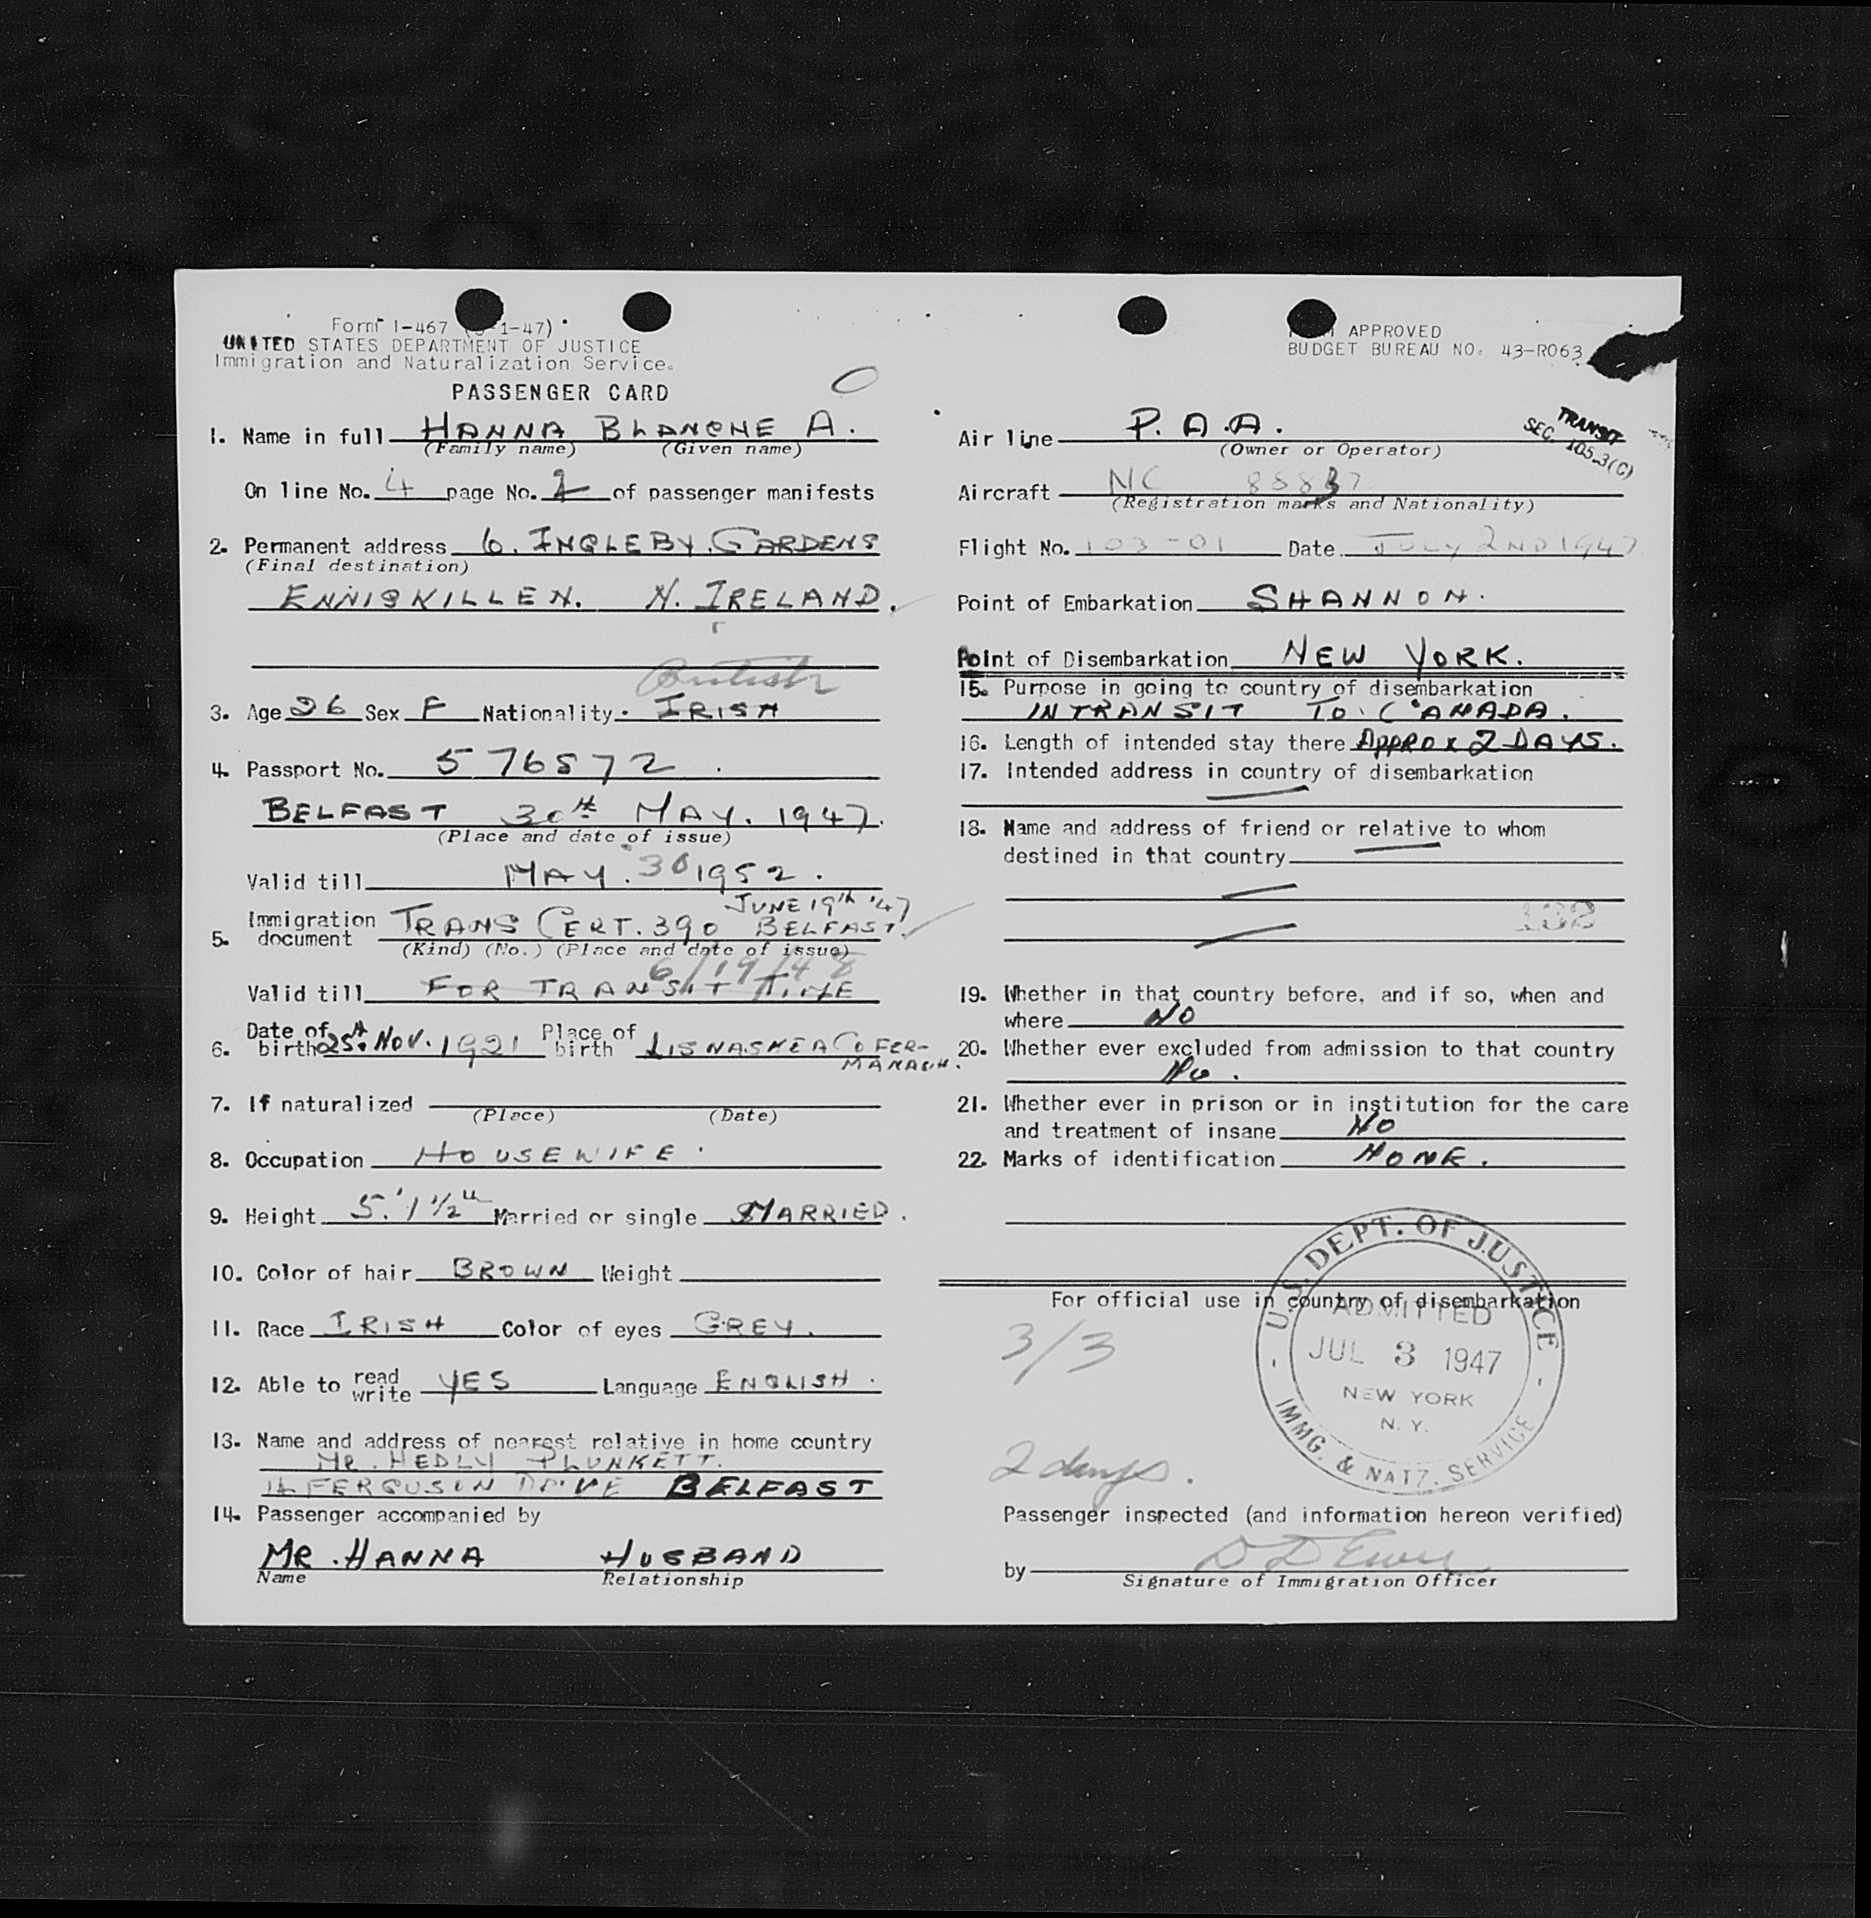 Form I-467 -1-47)
UNITED STATES DEPARTMENT OF JUSTICE
Immigration and Naturalization Service.
PASSENGER CARD
1. Name in full HANNA BLANCHE A.
(Family name) (Given name)
On line No. 4 page No. of passenger manifests
2. Permanent address 6. INGLEBY. GARDENS
(Final destination)
ENNISKILLEN. N. IRELAND.
British
3. Age 26 Sex F Nationality IRISH
4. Passport No. 576572
BELFAST 30th MAY. 1947.
(Place and date of issue)
Valid till MAY. 30 1952.
JUNE 19th '47
5. Immigration document TRANS CERT. 390 BELFAST.
(Kind) (No.) (Place and date of issue)
6/19/48
Valid till FOR TRANSIT TIME
6. Date of birth 25th NOV. 1921 Place of birth LISNASKEA CO FER-
MANAGH.
7. If naturalized
(Place) (Date)
8. Occupation HOUSEWIFE.
9. Height 5.'1 1/2" Married or single MARRIED.
10. Color of hair BROWN Weight
11. Race IRISH Color of eyes GREY.
12. Able to read write YES Language ENGLISH.
13. Name and address of nearest relative in home country
MR. HEDLY PLUNKETT.
14 FERGUSON DRIVE BELFAST
14. Passenger accompanied by
MR. HANNA HUSBAND
Name Relationship
APPROVED
BUDGET BUREAU NO. 43-R063
TRANSIT
SEC. 105.3(C)
Air line P.A.A.
(Owner or Operator)
Aircraft NC 88837
(Registration marks and Nationality)
Flight No. 103-01 Date JULY 2ND 1947
Point of Embarkation SHANNON.
Point of Disembarkation NEW YORK.
15. Purpose in going to country of disembarkation
IN TRANSIT TO CANADA.
16. Length of intended stay there APPROX 2 DAYS.
17. Intended address in country of disembarkation
18. Name and address of friend or relative to whom
destined in that country
138
19. Whether in that country before, and if so, when and
where NO
20. Whether ever excluded from admission to that country
No.
21. Whether ever in prison or in institution for the care
and treatment of insane NO
22. Marks of identification NONE.
For official use in country of disembarkation
3/3
U.S. DEPT. OF JUSTICE
ADMITTED
JUL 3 1947
NEW YORK
N.Y.
IMMG. & NATZ. SERVICE
2 days.
Passenger inspected (and information hereon verified)
by
Signature of Immigration Officer